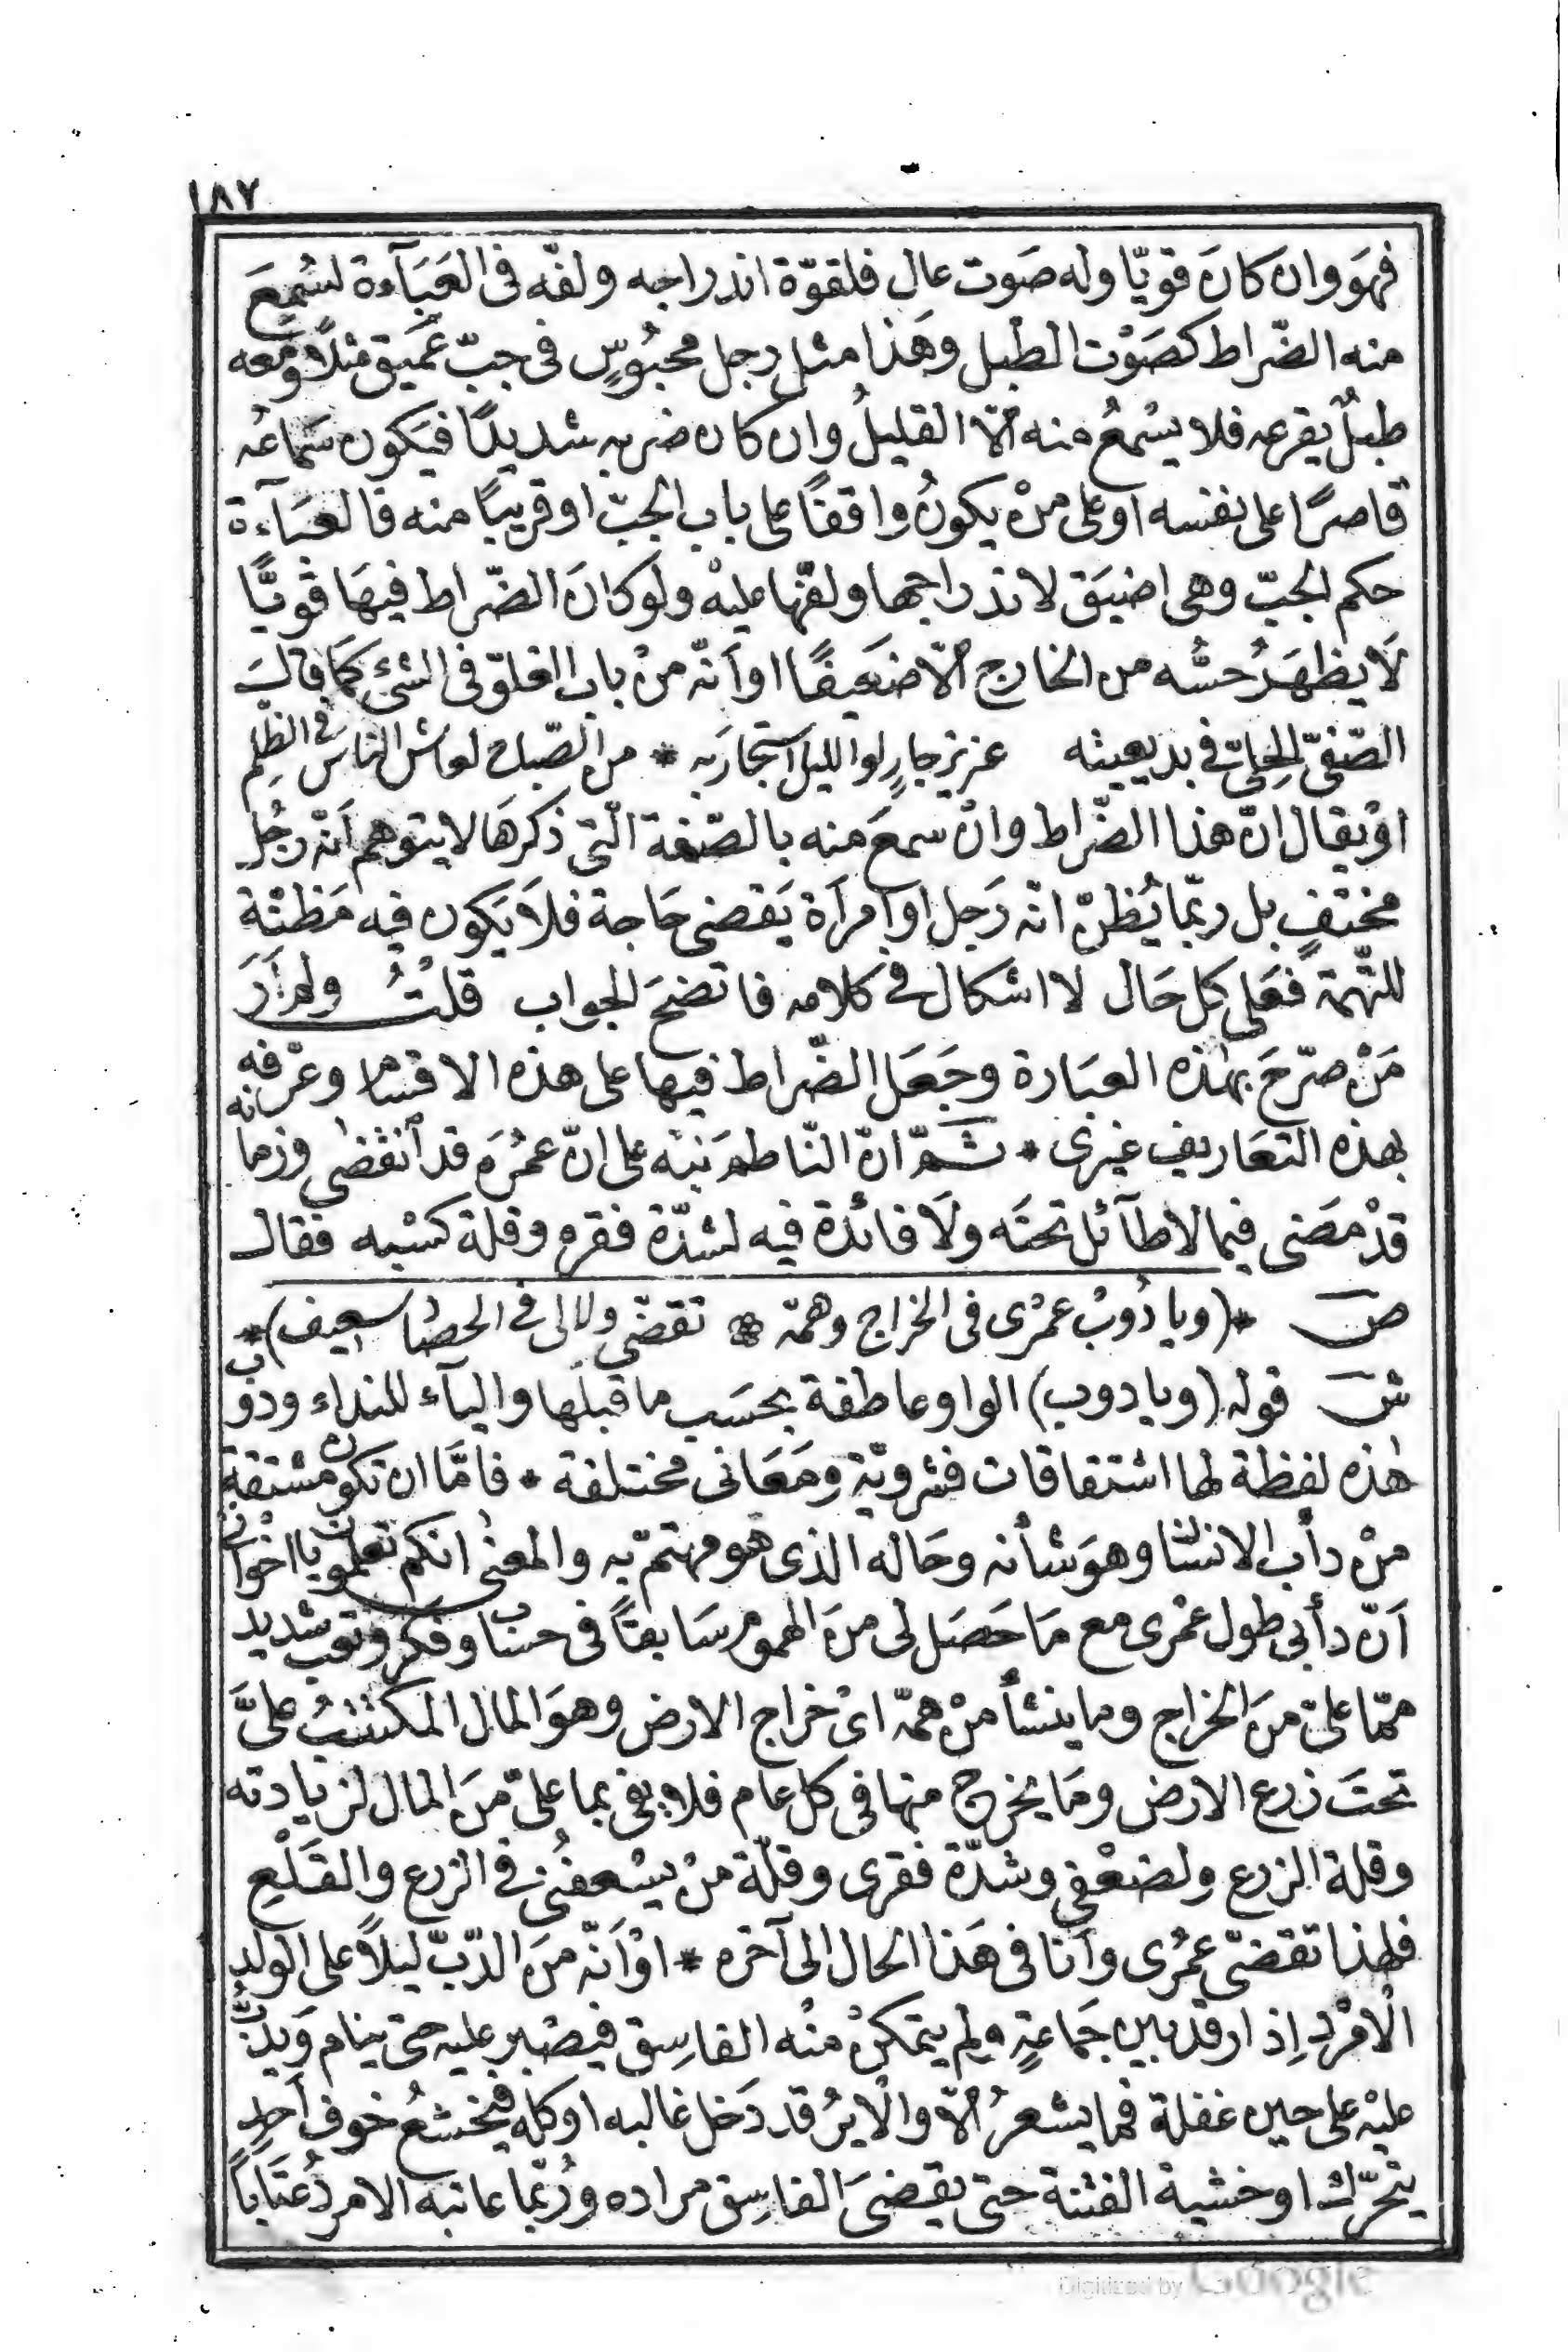 ١٨٧
فهَو وان كانَ قويّا وله صَوت عال فلقوّة اندراجه ولفّه فى العَبَآءة لسُمِعَ
منه الضّراط كصَوْت الطبل وهَذا مثل رجل محبُوسٍ فى جبّ عَميق مثلاً ومعه
طبلٌ يقرعه فلا يسْمعُ منه الّا القليلُ وان كان ضربه شديدًا فيَكون سَماعُه
قاصرًا على نفسه او على منْ يكونُ واقفاً على باب الجبّ او قريبًا منه فالعبَآءة
حكم الجبّ وهى اضيَق لاندراجها ولفّها عليْه ولو كانَ الضّراط فيهَا قويًّا
لاَ يظهَرُ حسُّه من الخارج الّا ضعَيفًا او اَنّه منْ باب الغلوّ فى الشئ كمَا قالَ
الصّفىّ الحِلىّ فى بديعيته عزيز جارٍ لو الليل استجار به * من الصّباح لعاش الناسَ فى الظلم
اوْ يقال انّ هذا الضّراط وانْ سمعَ منه بالصّفة الّتى ذكرهَا لا يتوهم اَنّه رجُل
مختفٍ بل ربّما يُظنّ انّه رَجل او اَمرَاَة يَقضى حَاجة فلاَ يَكون فيه مَظنّة
للتّهمَة فعَلى كل حَال لا اشكال فى كلامه فاتضحَ الجواب قلتُ ولم اَرَ
مَنْ صرّحَ بهٰذه العبَارة وجَعَل الضّراط فيها على هذه الاقسام وعرّفه
بهذه التعَاريف غيرى * ثمّ انّ النّاظم نبّه على انّ عمُرَه قد اَنقضى وزمانه
قدْ مَضى فيما لا طآئل تحتَه ولَا فائدة فيه لشدّة فقره وقلة كسْبه فقال
ص *(ويا دُوبْ عمْرى فى الخراج وهمّه ❁ تقضّى ولا لى فى الحصاد سعيف)*
ش قوله (ويا دوب) الواو عاطفة بحسَب ما قبلَها واليآء للنداء ودوب
هٰذه لفظة لها اشتقاقات فشرويّة ومَعَانى مختلفة * فامَّا ان تكون مشتقة
منْ دأب الانسَان وهوَ شأنه وحَاله الذى هو مهتمّ به والمعنى انكم تعلمون يا اخوانى
اَنّ دأبى طول عمْرى مع مَا حَصَل لى منَ الهموم سَابقاً فى حسَاب وفكر وتعب شديد
ممّا علىّ منَ الخراج وما ينشأ منْ همّه اىْ خراج الارض وهوَ المال المكتتبُ علىَّ
تحتَ زرع الارض ومَا يخرج منها فى كل عام فلا يفى بما علىّ منَ المال لزيادته
وقلة الزرع ولضعْفى وشدّة فقرى وقلّة منْ يسْعفُنى فى الزرع والقَلْعِ
فلهذا تقضىّ عمُرى وأنا فى هَذا الحال الى آخره * اوْ اَنّه منَ الدّبّ ليلاً على الولد
الْامْرَدِ اِذا رقد بين جَماعَةٍ ولم يتمكنْ منْه الفاسِق فيصْبر عليه حتى ينام وَيدبُّ
عليْه على حين غفلة فما يشعرُ الّا والْايرُ قد دَخل غالبه او كله فيَخشعُ خوف اَحدٍ
يتحرّك او خشية الفتنة حتى يقضىَ الفاسِق مراده ورُبّما عاتبه الامردُ عتَاباً
Digitized by Google